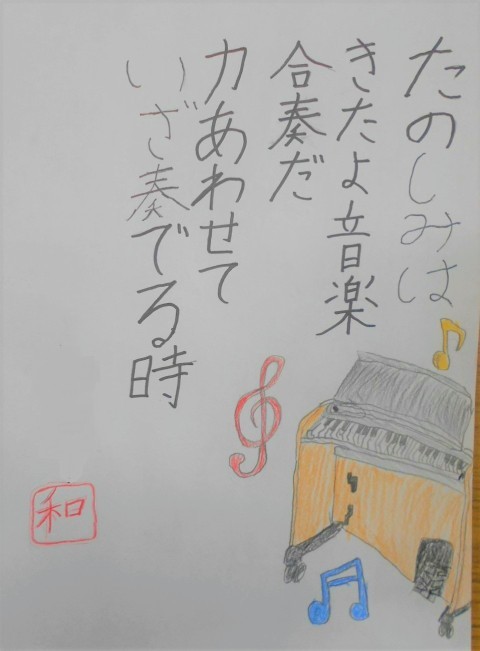 たのしみは
きたよ音楽
合奏だ
力あわせて
いざ奏でる時
和